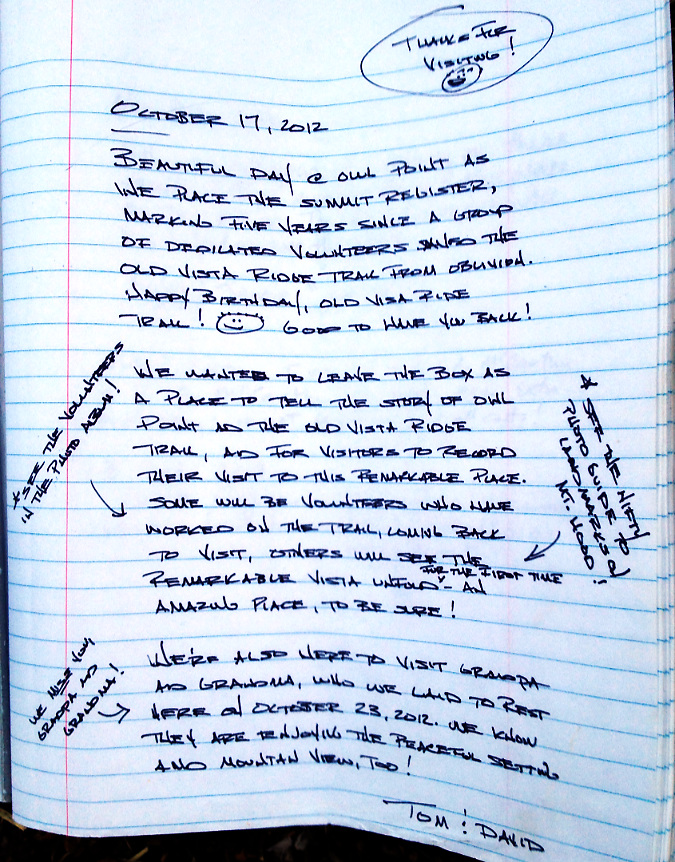 THANKS FOR
VISITING!
OCTOBER 17, 2012
BEAUTIFUL DAY @ OWL POINT AS
WE PLACE THE SUMMIT REGISTER,
MARKING FIVE YEARS SINCE A GROUP
OF DEDICATED VOLUNTEERS SAVED THE
OLD VISTA RIDGE TRAIL FROM OBLIVION.
HAPPY BIRTHDAY, OLD VISA RIDE
TRAIL! GOOD TO HAVE YOU BACK!
WE WANTED TO LEAVE THE BOX AS
A PLACE TO TELL THE STORY OF OWL
POINT AD THE OLD VISTA RIDGE
TRAIL, AD FOR VISITORS TO RECORD
THEIR VISIT TO THIS REMARKABLE PLACE.
SOME WILL BE VOLUNTEERS WHO HAVE
WORKED ON THE TRAIL, COMING BACK
TO VISIT, OTHERS WILL SEE THE
FOR THE FIRST TIME
REMARKABLE VISTA UNFOLD - AN
AMAZING PLACE, TO BE SURE!
* SEE THE VOLUNTEERS
IN THE PHOTO ALBUM!
* SEE THE NIFTY
PHOTO GUIDE TO
LANDMARKS ON
MT. HOOD!
WE'RE ALSO HERE TO VISIT GRANDPA
AD GRANDMA, WHO WE LAID TO REST
HERE ON OCTOBER 23, 2012. WE KNOW
THEY ARE ENJOYING THE PEACEFUL SETTING
AND MOUNTAN VIEW, TOO!
WE MISS YOU,
GRANDPA AD
GRANDMA!
TOM & DAVID